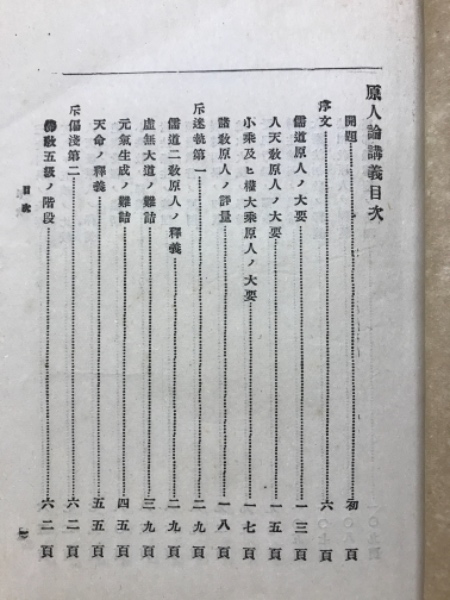 原人論講義目次
開題……初頁
序文……六頁
儒道原人ノ大要……一三頁
人天敎原人ノ大要……一五頁
小乘及ヒ權大乘原人ノ大要……一七頁
諸敎原人ノ評量……一八頁
斥迷執第一……二九頁
儒道二敎原人ノ釋義……二九頁
虛無大道ノ難詰……三九頁
元氣生成ノ難詰……四五頁
天命ノ釋義……五五頁
斥偏淺第二……六二頁
佛敎五級ノ階段……六二頁
目次